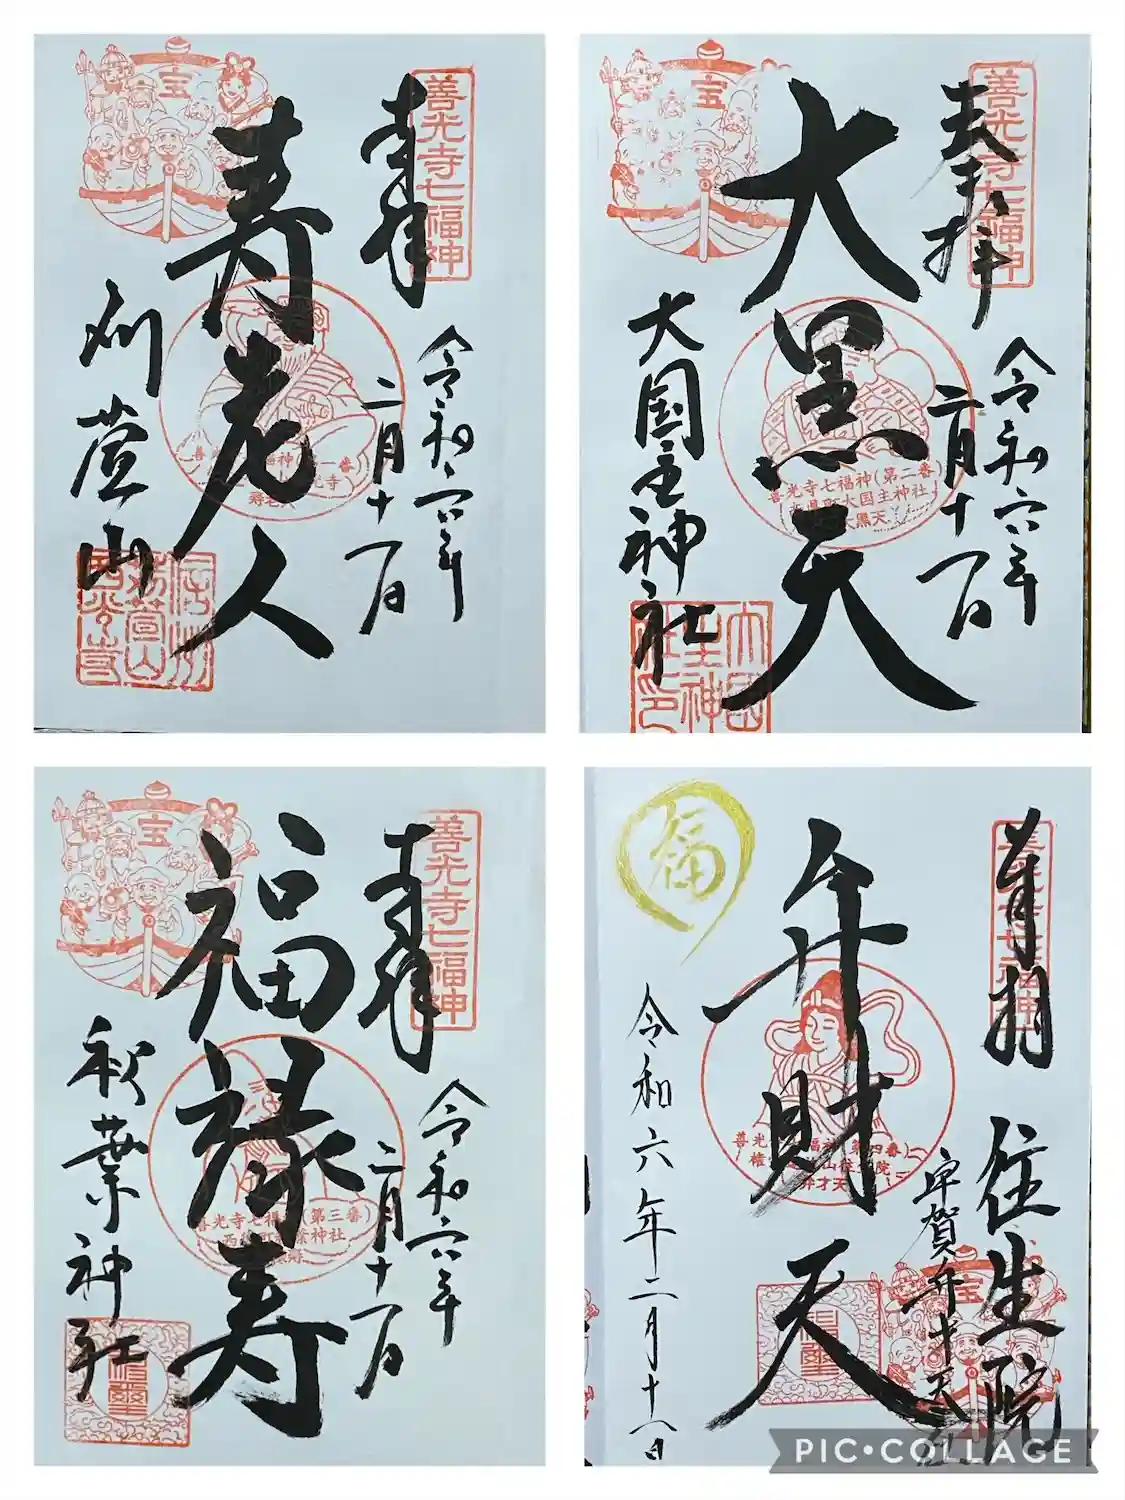 善光寺七福神
奉拝
令和六年
二月十一日
寿老人
宝
刈萱山
善光寺七福神
奉拝
令和六年
二月十一日
大黒天
宝
善光寺七福神(第二番)
大国主神社
大黒天
大国主神社
善光寺七福神
奉拝
令和六年
二月十一日
福禄寿
宝
善光寺七福神(第三番)
秋葉神社
奉拝
往生院
宇賀弁才天
弁財天
福
弁才天
宝
令和六年二月十八日
PIC•COLLAGE